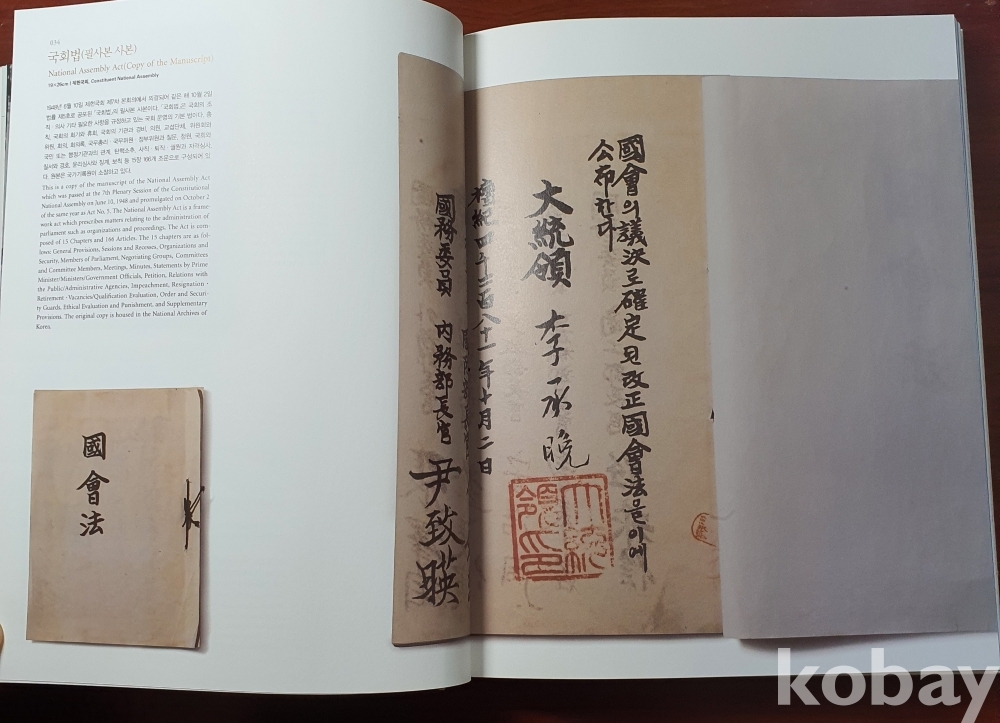 034
국회법(필사본 사본)
National Assembly Act(Copy of the Manuscript)
19×26cm | 제헌국회, Constituent National Assembly
1948년 6월 10일 제헌국회 제7차 본회의에서 의결되어 같은 해 10월 2일
법률 제5호로 공포된 「국회법」의 필사본 사본이다. 「국회법」은 국회의 조
직·의사 기타 필요한 사항을 규정하고 있는 국회 운영의 기본 법이다. 총
칙, 국회의 회기와 휴회, 국회의 기관과 경비, 의원, 교섭단체, 위원회와
위원, 회의, 회의록, 국무총리·국무위원·정부위원과 질문, 청원, 국회와
국민 또는 행정기관과의 관계, 탄핵소추, 사직·퇴직·궐원과 자격심사,
질서와 경호, 윤리심사와 징계, 보칙 등 15장 166개 조문으로 구성되어 있
다. 원본은 국가기록원이 소장하고 있다.
This is a copy of the manuscript of the National Assembly Act
which was passed at the 7th Plenary Session of the Constitutional
National Assembly on June 10, 1948 and promulgated on October 2
of the same year as Act No. 5. The National Assembly Act is a frame-
work act which prescribes matters relating to the administration of
parliament such as organizations and proceedings. The Act is com-
posed of 15 Chapters and 166 Articles. The 15 chapters are as fol-
lows: General Provisions, Sessions and Recesses, Organizations and
Security, Members of Parliament, Negotiating Groups, Committees
and Committee Members, Meetings, Minutes, Statements by Prime
Minister/Ministers/Government Officials, Petition, Relations with
the Public/Administrative Agencies, Impeachment, Resignation·
Retirement·Vacancies/Qualification Evaluation, Order and Securi-
ty Guards, Ethical Evaluation and Punishment, and Supplementary
Provisions. The original copy is housed in the National Archives of
Korea.
國會法
國會의議決로確定된改正國會法을이에
公布한다
大統領 李承晩
大統領印
檀紀四千二百八十一年十月二日
國務委員 內務部長官 尹致暎
kobay